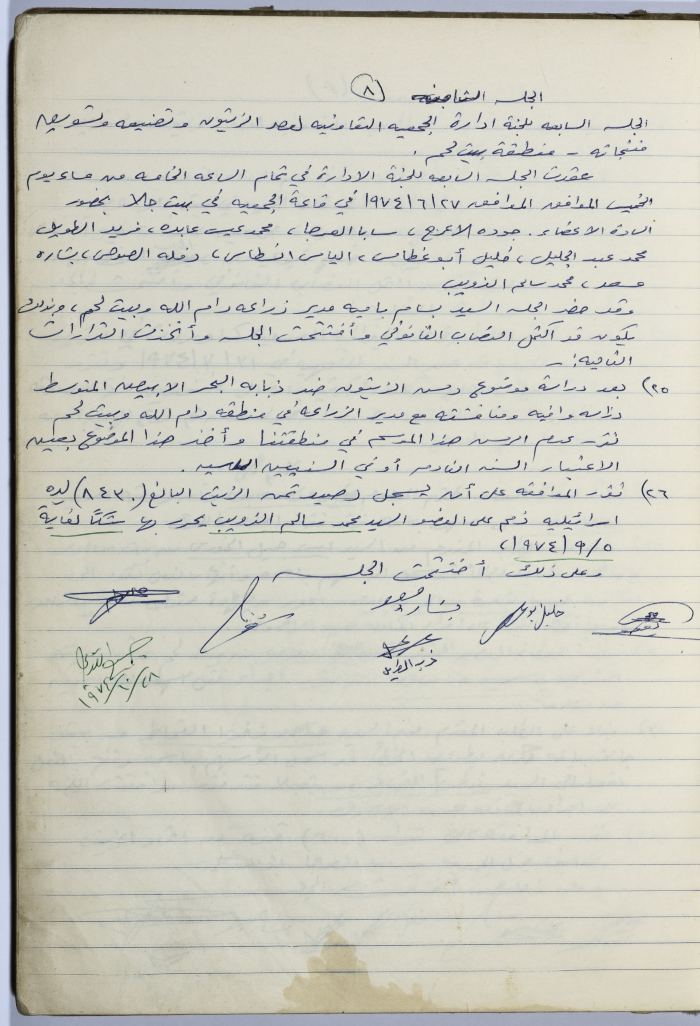 ٨
الجلسه الثامنه
الجلسه السابعه للجنة ادارة الجمعيه التعاونيه لعصر الزيتون وتصنيعه وتسويق
منتجاته - منطقة بيت لحم .
عقدت الجلسه السابعه للجنة الادارة في تمام الساعه الخامسه من مساء يوم
الخميس الموافق الموافق ١٩٧٤/٦/٢٧ في قاعة الجمعيه في بيت جالا بحضور
السادة الاعضاء . جوده الاعرج ، سابا العرجا ، محمد عابده ، فريد الطويل
محمد عبد الجليل ، خليل أبو غطاس ، الياس ، الصوص ، بشاره
مسعد ، محمد سالم الذويب
وقد حضر الجلسه السيد بسام باميه مدير زراعة رام الله وبيت لحم ، وبذلك
يكون قد اكتمل النصاب القانوني وأفتتحت الجلسه وأتخذت القرارات
التاليه :-
٢٥) بعد دراسة موضوع رش الزيتون ضد ذبابه البحر الابيض المتوسط
دراسه وافيه ومناقشته مع مدير الزراعة في منطقه رام الله وبيت لحم
تقرر عدم الرش هذا الموسم في منطقتنا وأخذ هذا الموضوع بعين
الاعتبار السنه القادمه أو في السنتين .
٢٦) تقرر الموافقه على أن يسجل رصيد ثمن الزيت البالغ (٨٤٣٠) ليره
اسرائيليه ذمم على العضو السيد محمد سالم الذويب يحرر بها شكاً لغاية
١٩٧٤/٩/٥ ،
وعلى ذلك أختتمت الجلسه
بشاره مسعد
خليل ابو
فريد الطويل
١٩٧٤/١٠/٢٨